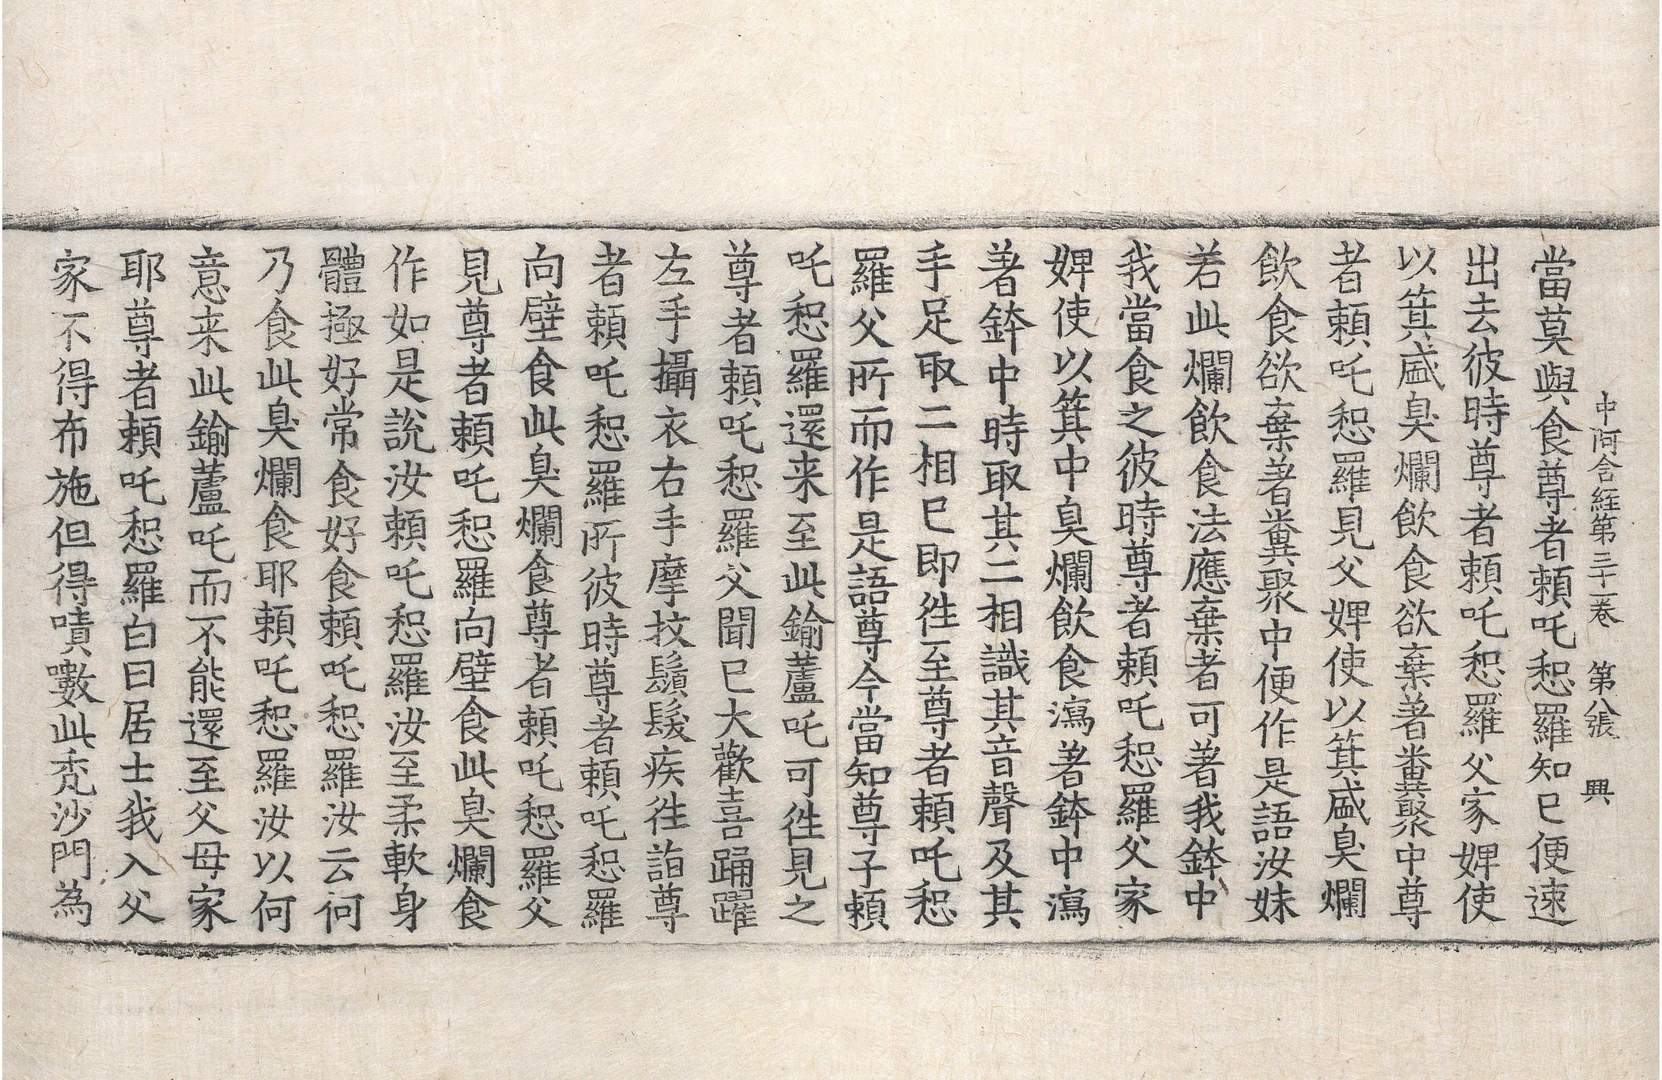 中阿含経第三十一卷　第八張　興
當莫與食尊者頼吒惒羅知已便速
出去彼時尊者頼吒惒羅父家婢使
以箕盛臭爛飲食欲棄著糞聚中尊
者頼吒惒羅見父婢使以箕盛臭爛
飲食欲棄著糞聚中便作是語汝妹
若此爛飲食法應棄者可著我鉢中
我當食之彼時尊者頼吒惒羅父家
婢使以箕中臭爛飲食瀉著鉢中瀉
著鉢中時取其二相識其音聲及其
手足取二相已即徃至尊者頼吒惒
羅父所而作是語尊今當知尊子頼
吒惒羅還来至此鍮蘆吒可徃見之
尊者頼吒惒羅父聞已大歡喜踊躍
左手攝衣右手摩抆鬚髮疾徃詣尊
者頼吒惒羅所彼時尊者頼吒惒羅
向壁食此臭爛食尊者頼吒惒羅父
見尊者頼吒惒羅向壁食此臭爛食
作如是說汝頼吒惒羅汝至柔軟身
體極好常食好食頼吒惒羅汝云何
乃食此臭爛食耶頼吒惒羅汝以何
意来此鍮蘆吒而不能還至父母家
耶尊者頼吒惒羅白曰居士我入父
家不得布施但得嘖數此禿沙門為